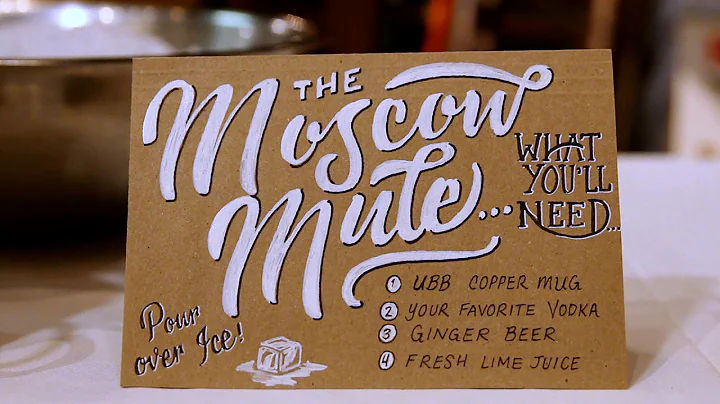 THE
Moscow
Mule...
WHAT
YOU'LL
NEED...
1 UBB COPPER MUG
2 YOUR FAVORITE VODKA
3 GINGER BEER
4 FRESH LIME JUICE
Pour
over Ice!